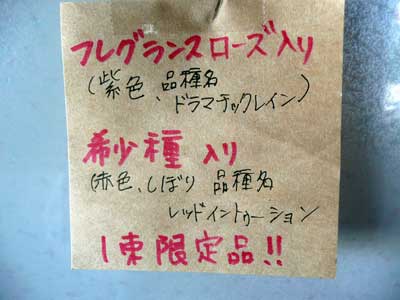 フレグランスローズ入り
(紫色、品種名
ドラマチックレイン)
希少種 入り
(赤色、しぼり 品種名
レッドイントゥーション
1束限定品!!